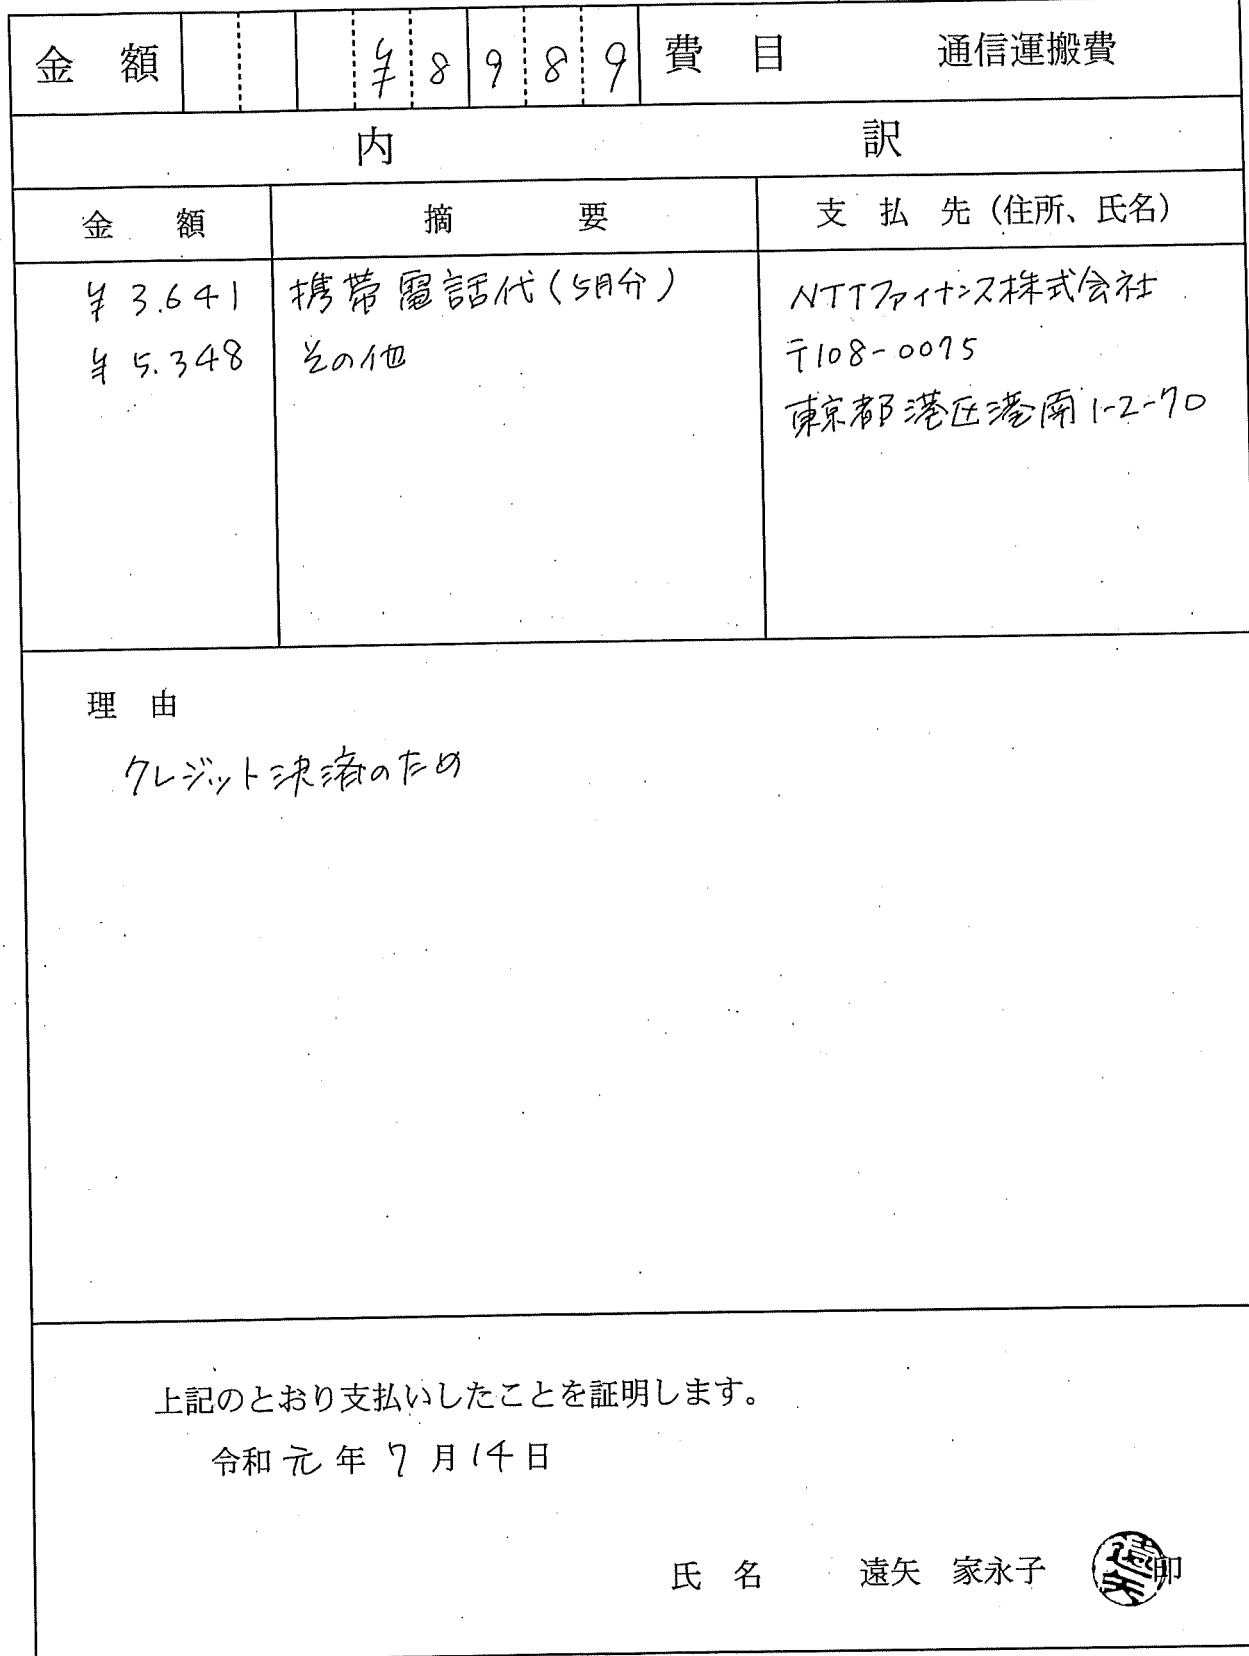 金額 ¥8989 費目 通信運搬費
内訳
金額 摘要 支払先（住所、氏名）
¥3.641 携帯電話代(5月分) NTTファイナンス株式会社
¥5.348 その他 〒108-0075
東京都港区港南1-2-70
理由
クレジット決済のため
上記のとおり支払いしたことを証明します。
令和元年7月14日
氏名 遠矢 家永子 印
遠矢